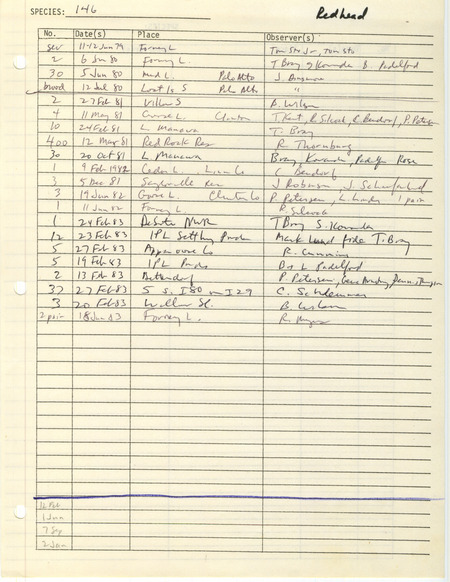 SPECIES: 146 Redhead
No. Date(s) Place Observer(s)
sev 11-12 Jun 79 Forney L. Tom Sto Jr, Tom Sto
2 6 Jun 80 Forney L. T Bray B. Padelford
30 5 Jun 80 Mud L. Palo Alto J.
brood 12 Jul 80 Lost Is S Palo Alto "
2 27 Feb 81 Willow S B. Wilson
4 11 May 81 Goose L. Clinton T Kent, R Silcock, C Bendorf, P. Petersen
10 24 Feb 81 L. Manawa T. Bray
400 12 Mar 81 Red Rock Res R Thornburg
30 20 Oct 81 L. Manawa Bray, Padelf Rose
1 9 Feb 1982 Cedar L. Linn Co C Bendorf
3 5 Dec 81 Saylorville Res J Robinson J
3 19 Jun 82 Goose L. Clinton Co P Petersen, 1 pair
1 11 Jun 82 Forney L R Silcock
1 24 Feb 83 DeSoto NWR T Bray S.
12 23 Feb 83 IPL Settling Ponds T. Bray
5 27 Feb 83 Appanoose Co R. Cummins
5 19 Feb 83 IPL Ponds B & L Padelford
2 13 Feb 83 P Petersen,
37 27 Feb 83 S S. I80 on I29 C.
3 20 Feb 83 Willow Sl. B Wilson
2 pair 18 Jun 83 Forney L. R.
12 Feb
1 Jun
7 Sep
2 Jan